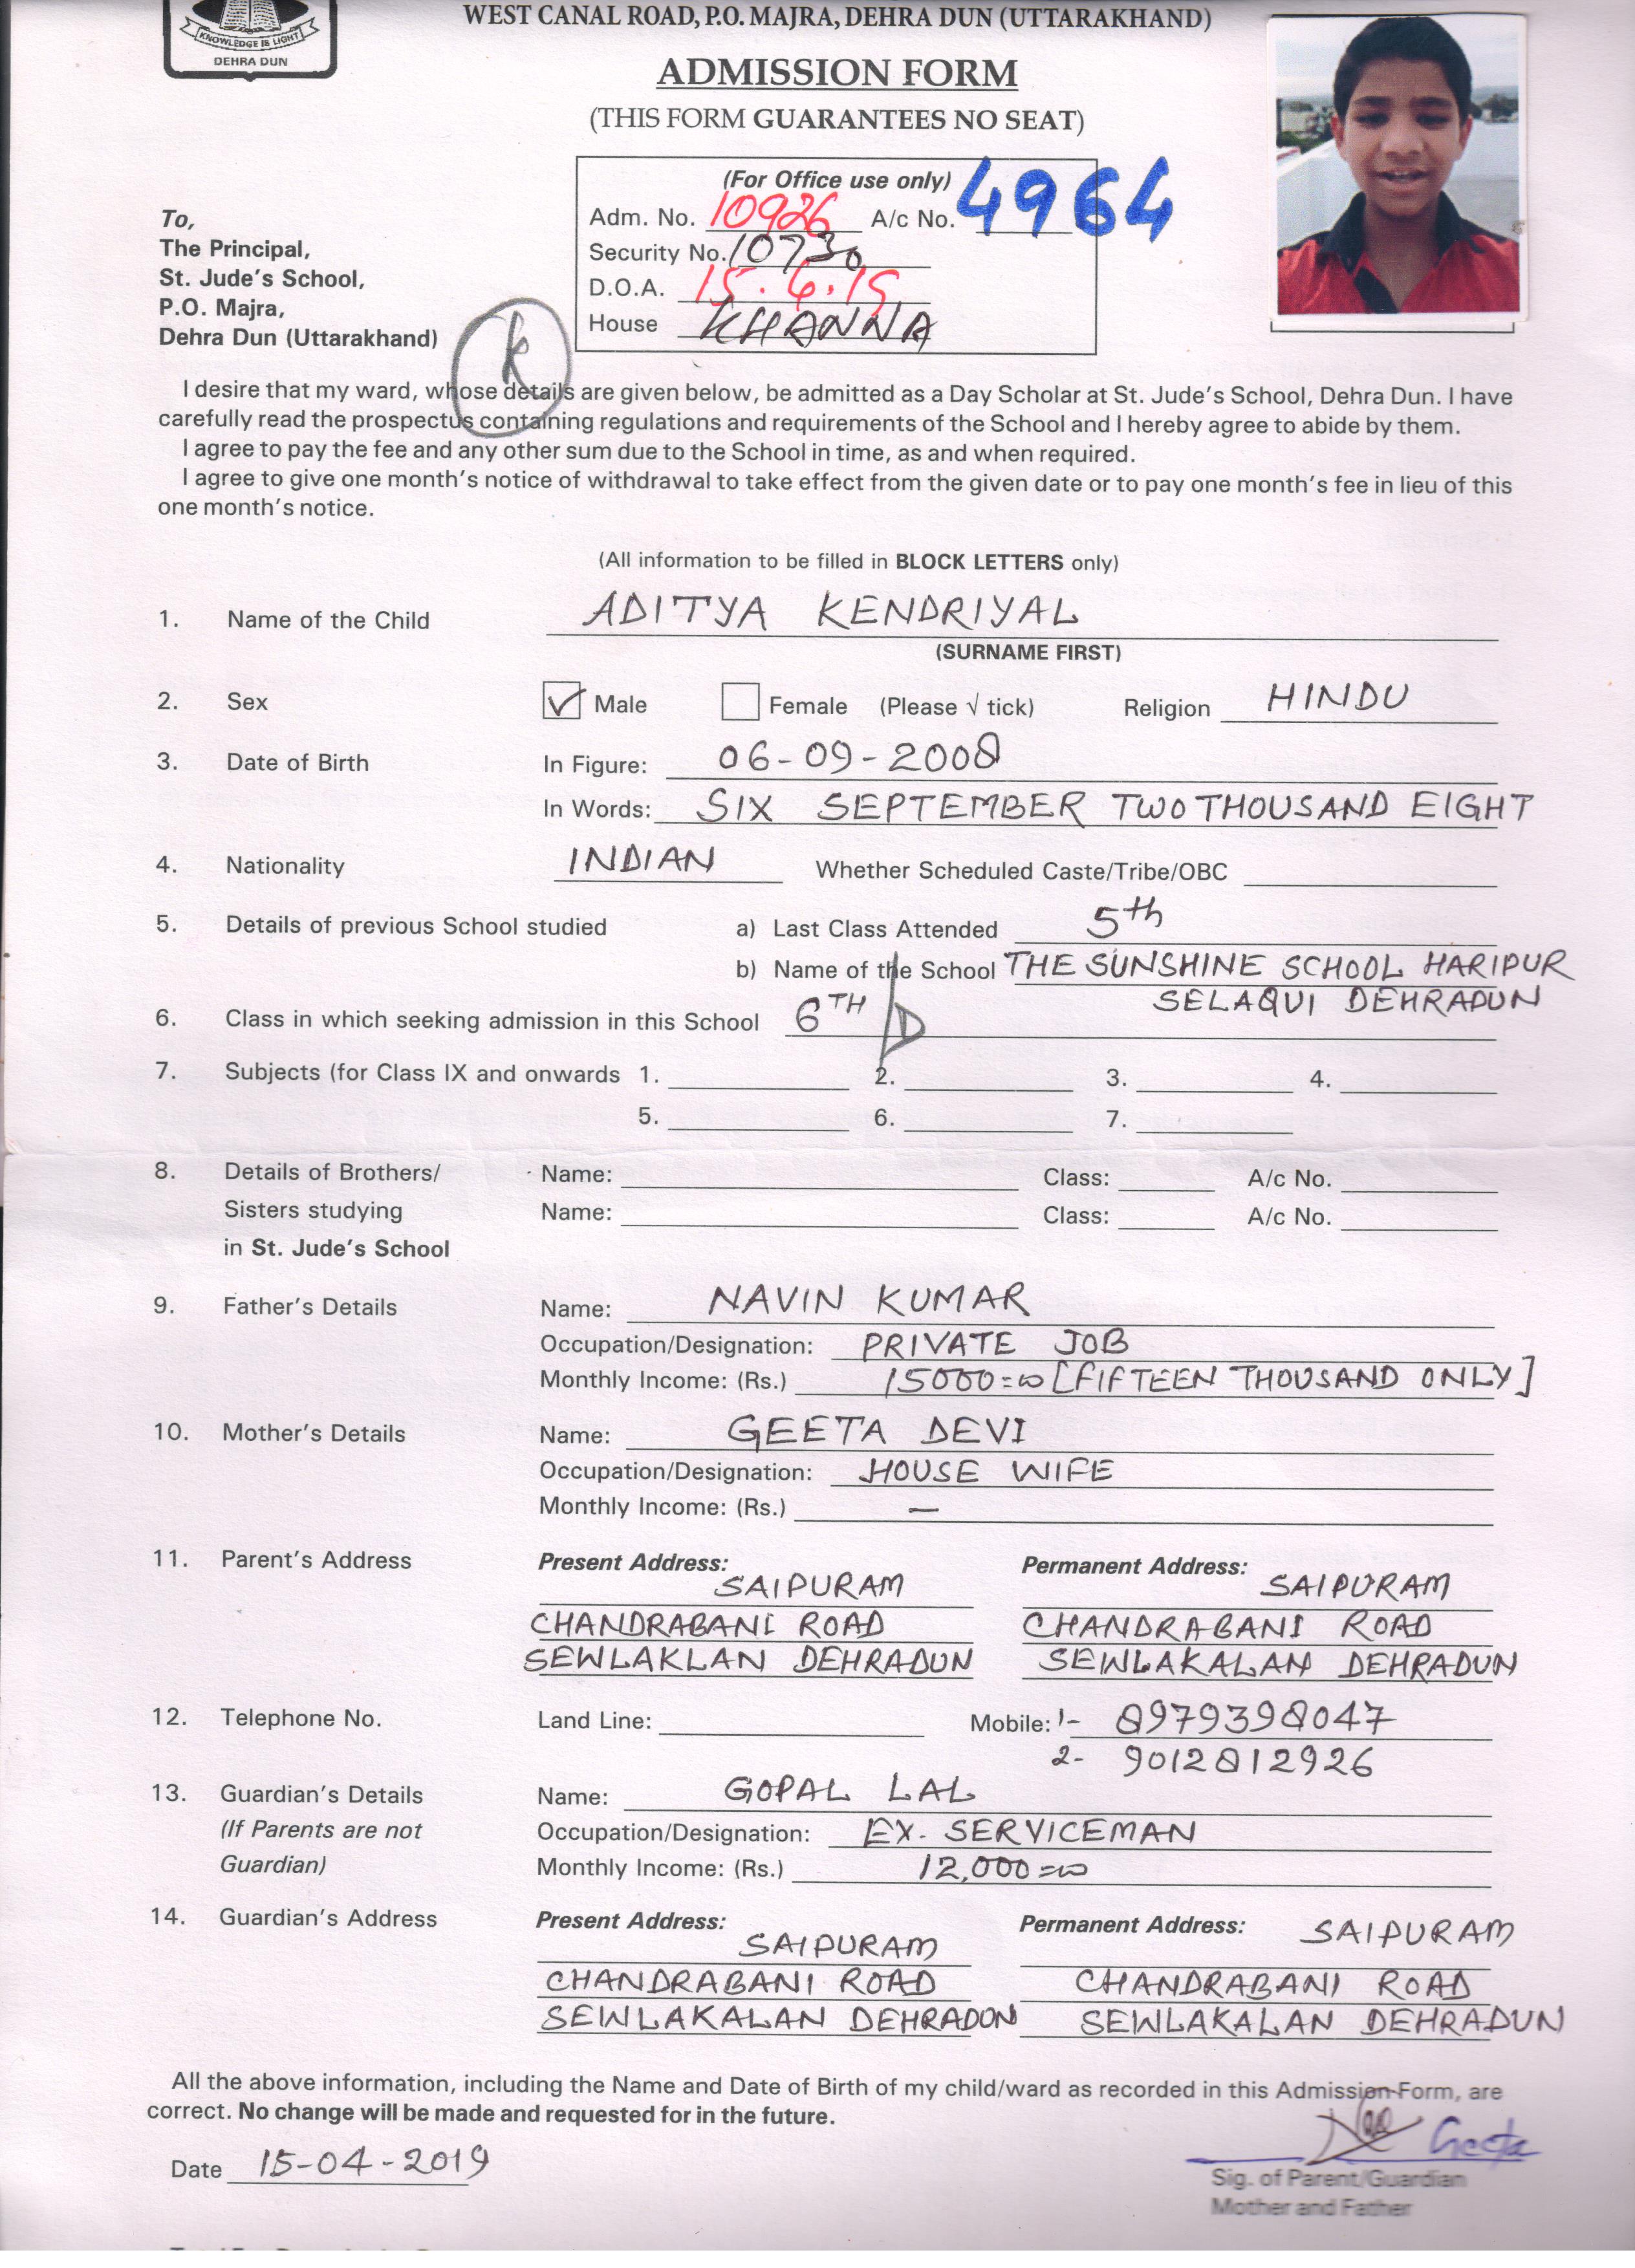 WEST CANAL ROAD, P.O. MAJRA, DEHRA DUN (UTTARAKHAND)
KNOWLEDGE IS LIGHT
DEHRA DUN
ADMISSION FORM
(THIS FORM GUARANTEES NO SEAT)
(For Office use only)
Adm. No. 10926 A/c No. 4964
Security No. 10730
D.O.A. 15.4.19
House KHANNA
To,
The Principal,
St. Jude's School,
P.O. Majra,
Dehra Dun (Uttarakhand)
k
I desire that my ward, whose details are given below, be admitted as a Day Scholar at St. Jude's School, Dehra Dun. I have
carefully read the prospectus containing regulations and requirements of the School and I hereby agree to abide by them.
I agree to pay the fee and any other sum due to the School in time, as and when required.
I agree to give one month's notice of withdrawal to take effect from the given date or to pay one month's fee in lieu of this
one month's notice.
(All information to be filled in BLOCK LETTERS only)
1. Name of the Child ADITYA KENDRIYAL
(SURNAME FIRST)
2. Sex Male Female (Please √ tick) Religion HINDU
3. Date of Birth In Figure: 06-09-2008
In Words: SIX SEPTEMBER TWO THOUSAND EIGHT
4. Nationality INDIAN Whether Scheduled Caste/Tribe/OBC
5. Details of previous School studied a) Last Class Attended 5th
b) Name of the School THE SUNSHINE SCHOOL HARIPUR
SELAQUI DEHRADUN
6. Class in which seeking admission in this School 6TH D
7. Subjects (for Class IX and onwards 1. 2. 3. 4.
5. 6. 7.
8. Details of Brothers/ Name: Class: A/c No.
Sisters studying Name: Class: A/c No.
in St. Jude's School
9. Father's Details Name: NAVIN KUMAR
Occupation/Designation: PRIVATE JOB
Monthly Income: (Rs.) 15000=00 [FIFTEEN THOUSAND ONLY]
10. Mother's Details Name: GEETA DEVI
Occupation/Designation: HOUSE WIFE
Monthly Income: (Rs.) —
11. Parent's Address Present Address: Permanent Address:
SAIPURAM SAIPURAM
CHANDRABANI ROAD CHANDRABANI ROAD
SEWLAKLAN DEHRADUN SEWLAKALAN DEHRADUN
12. Telephone No. Land Line: Mobile: 1- 8979398047
2- 9012812926
13. Guardian's Details Name: GOPAL LAL
(If Parents are not Occupation/Designation: EX. SERVICEMAN
Guardian) Monthly Income: (Rs.) 12,000=00
14. Guardian's Address Present Address: Permanent Address: SAIPURAM
SAIPURAM
CHANDRABANI ROAD CHANDRABANI ROAD
SEWLAKALAN DEHRADUN SEWLAKALAN DEHRADUN
All the above information, including the Name and Date of Birth of my child/ward as recorded in this Admission Form, are
correct. No change will be made and requested for in the future.
Date 15-04-2019 Geeta
Sig. of Parent/Guardian
Mother and Father